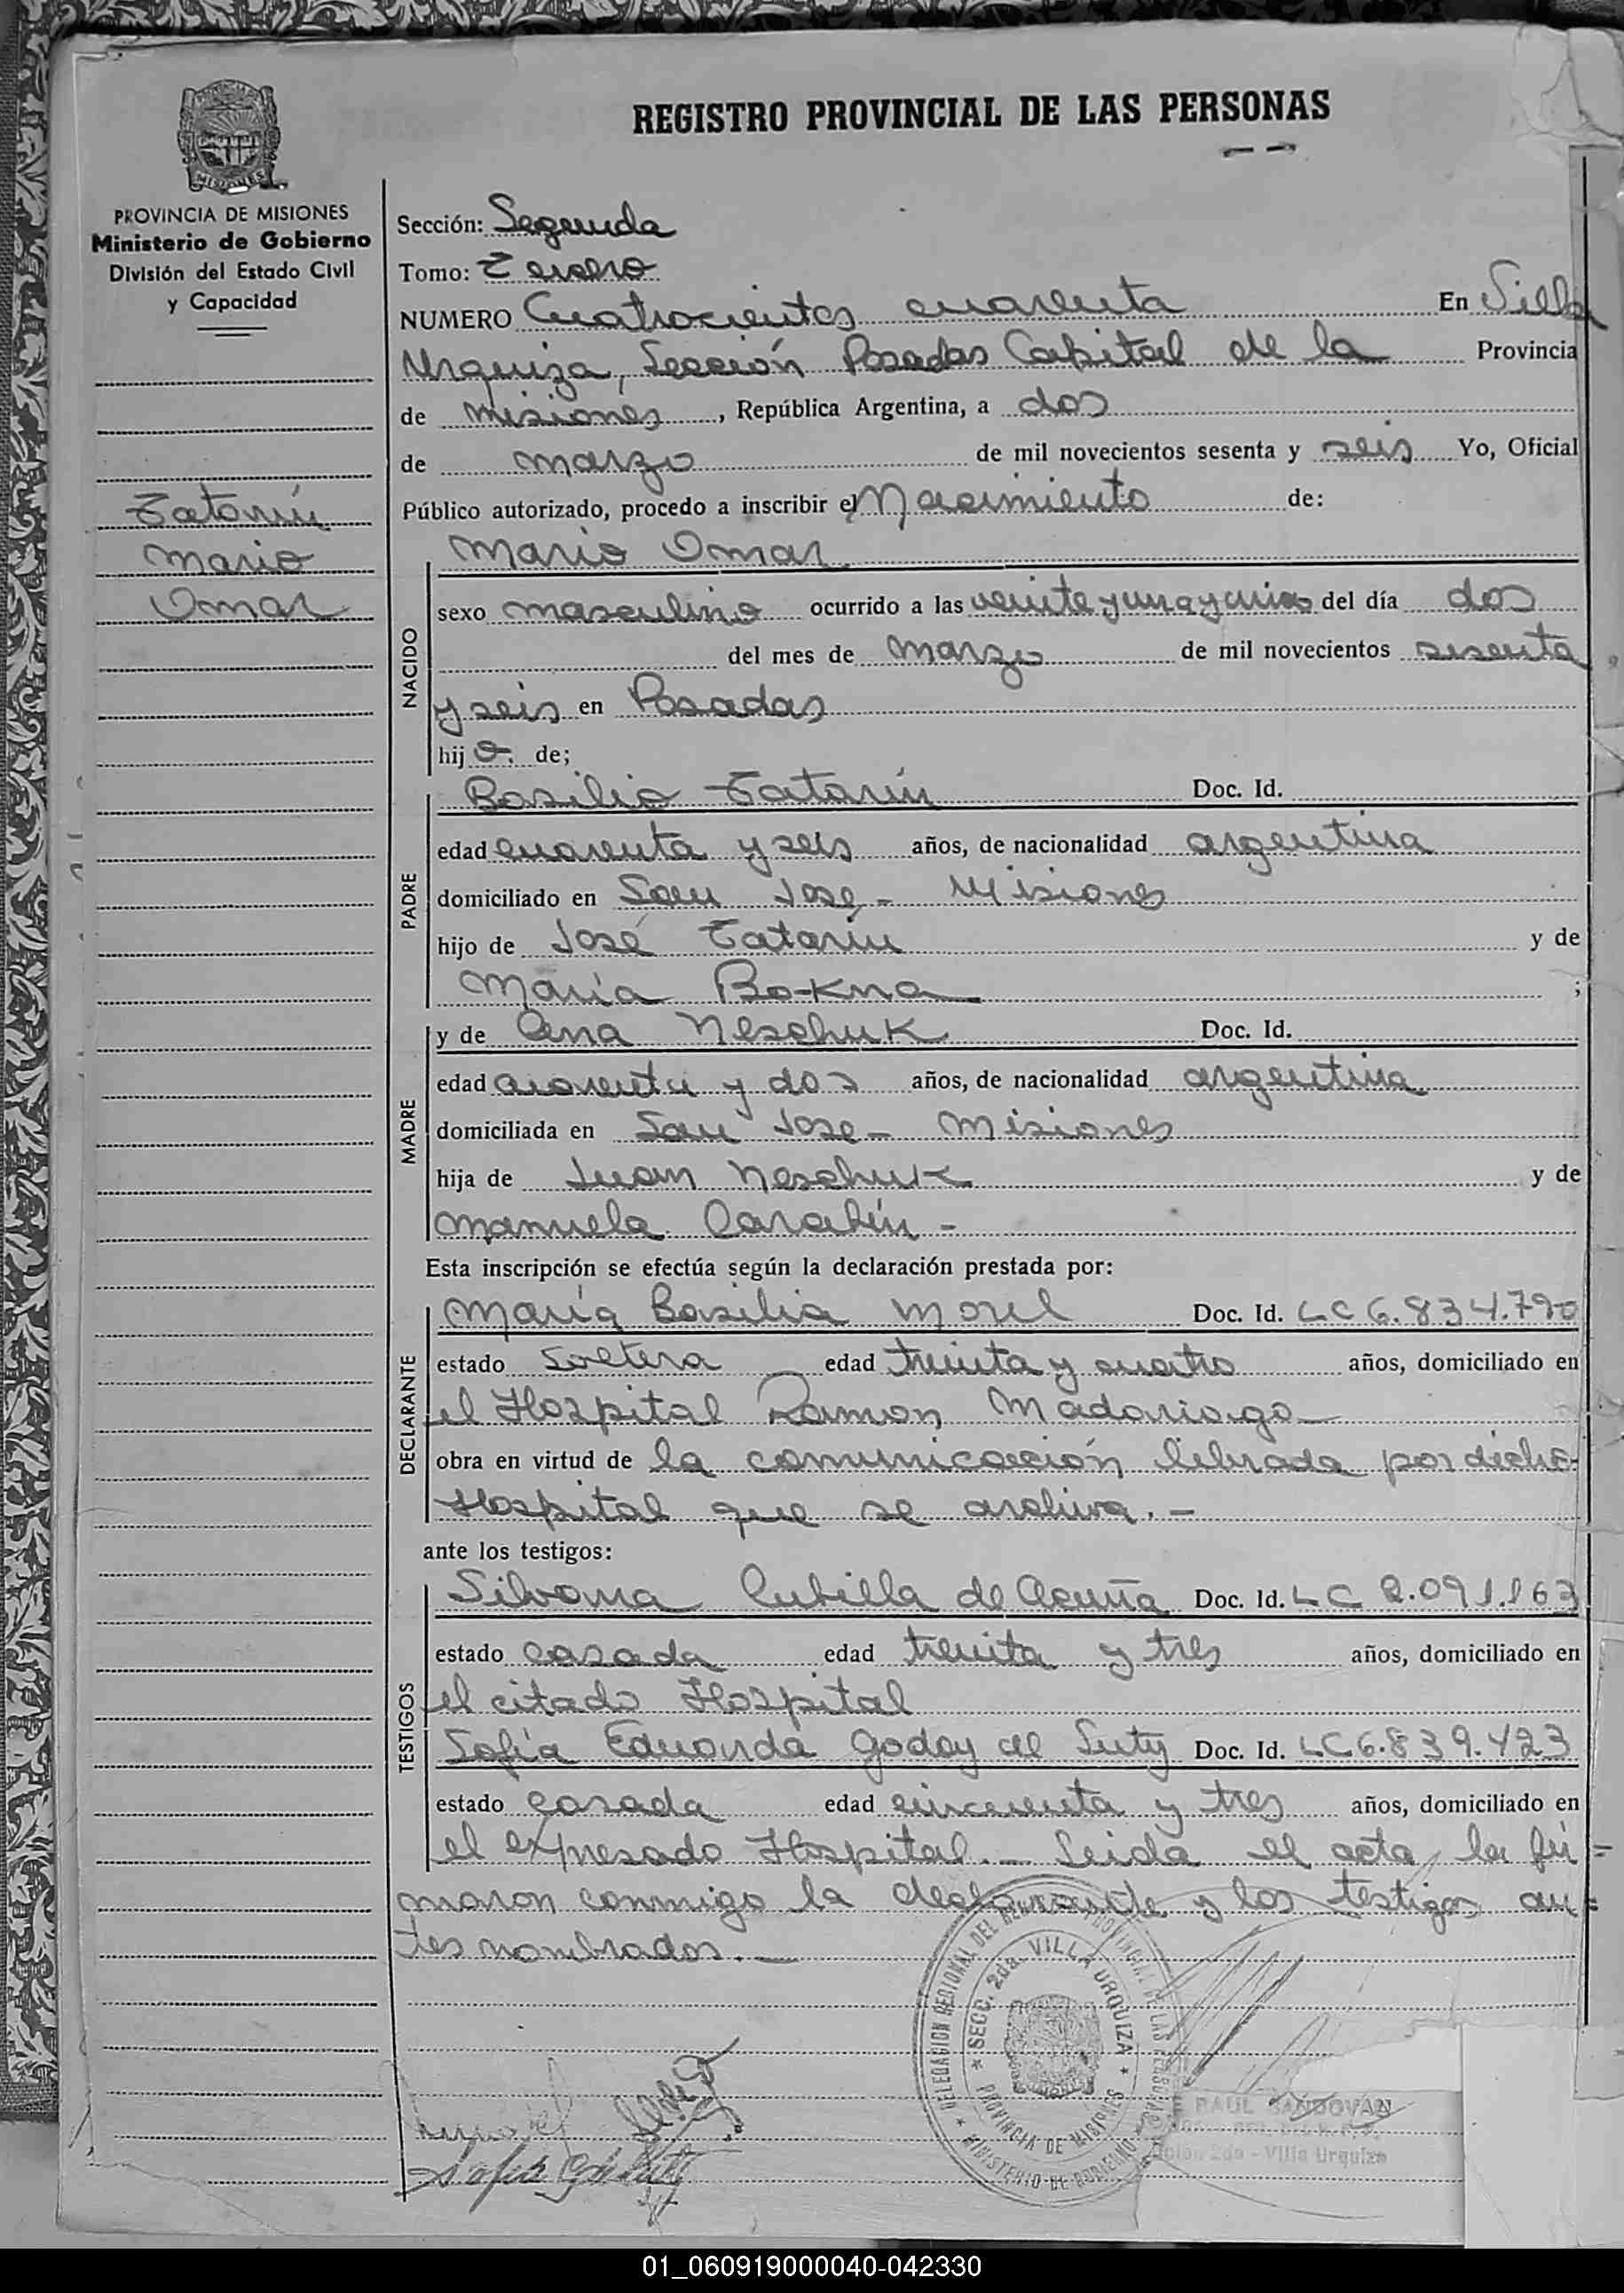 REGISTRO PROVINCIAL DE LAS PERSONAS
MISIONES
PROVINCIA DE MISIONES
Ministerio de Gobierno
División del Estado Civil
y Capacidad
Tatarín
Mario
Omar
Sección: Segunda
Tomo: Tercero
NUMERO Cuatrocientos cuarenta En Villa
Urquiza, Sección Posadas Capital de la Provincia
de Misiones, República Argentina, a dos
de marzo de mil novecientos sesenta y seis Yo, Oficial
Público autorizado, procedo a inscribir el Nacimiento de:
NACIDO
Mario Omar
sexo masculino ocurrido a las veinte y una y cinco del día dos
del mes de marzo de mil novecientos sesenta
y seis en Posadas
hijo. de;
PADRE
Basilio Tatarín Doc. Id.
edad cuarenta y seis años, de nacionalidad argentina
domiciliado en San José - Misiones
hijo de José Tatarin y de
María Bokna ;
MADRE
y de Ana Neschuk Doc. Id.
edad cuarenta y dos años, de nacionalidad argentina
domiciliada en San Jose - Misiones
hija de Juan Neschuk y de
Manuela -
Esta inscripción se efectúa según la declaración prestada por:
DECLARANTE
María Basilia Morel Doc. Id. LC 6.834.790
estado Soltera edad treinta y cuatro años, domiciliado en
el Hospital Ramon Madariaga
obra en virtud de la comunicación librada por dicho
Hospital que se archiva. -
ante los testigos:
TESTIGOS
Silvana Cubilla de Acuña Doc. Id. LC 2.091.163
estado casada edad treinta y tres años, domiciliado en
el citado Hospital
Sofía Eduarda Godoy de Doc. Id. LC 6.839.423
estado casada edad cincuenta y tres años, domiciliado en
el expresado Hospital. - Leida el acta, la fir=
maron conmigo la declarante y los testigos an=
tes nombrados. -
DELEGACION REGIONAL DEL REGISTRO PROVINCIAL DE LAS PERSONAS
* SECC. 2da. VILLA URQUIZA *
PROVINCIA DE MISIONES
* MINISTERIO DE GOBIERNO *
RAUL SANDOVAL
2da - Villa Urquiza
01_060919000040-042330